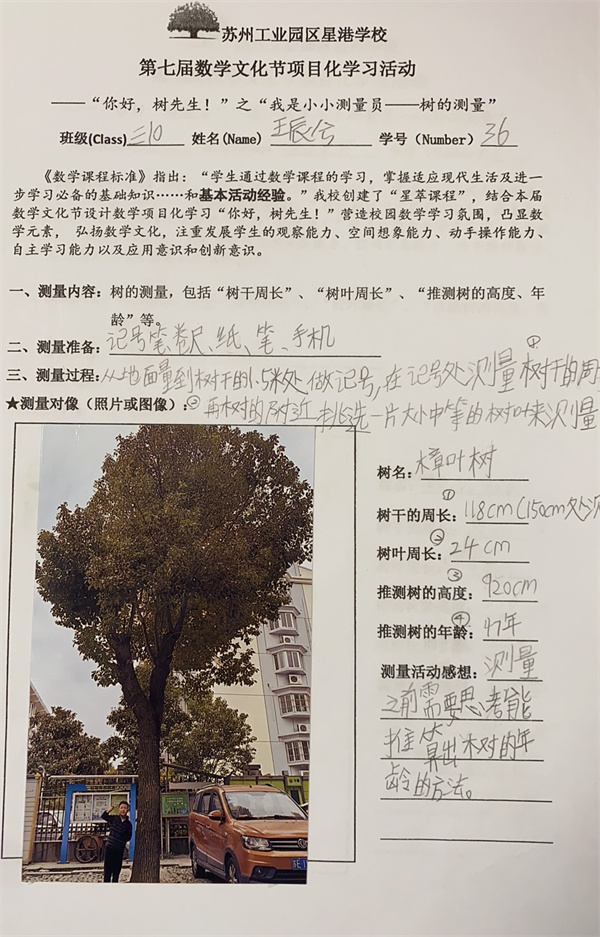 苏州工业园区星港学校
第七届数学文化节项目化学习活动
——“你好，树先生！”之“我是小小测量员——树的测量”
班级(Class) 三10 姓名(Name) 王辰兮 学号（Number）36
《数学课程标准》指出：“学生通过数学课程的学习，掌握适应现代生活及进一
步学习必备的基础知识……和基本活动经验。”我校创建了“星萃课程”，结合本届
数学文化节设计数学项目化学习“你好，树先生！”营造校园数学学习氛围，凸显数
学元素， 弘扬数学文化，注重发展学生的观察能力、空间想象能力、动手操作能力、
自主学习能力以及应用意识和创新意识。
一、测量内容：树的测量，包括“树干周长”、“树叶周长”、“推测树的高度、年
龄”等。
二、测量准备：记号笔、卷尺、纸、笔、手机
三、测量过程：从地面量到树干的1.5米处做记号，在记号处测量①树干的周
★测量对像（照片或图像）：②再树的附近挑选一片大小中等的树叶来测量
树名：樟叶树
树干的周长：①118cm（150cm处测
树叶周长：②24cm
推测树的高度：③920cm
推测树的年龄：④47年
测量活动感想：测量
之前需要思考能
推算出树的年
龄的方法。